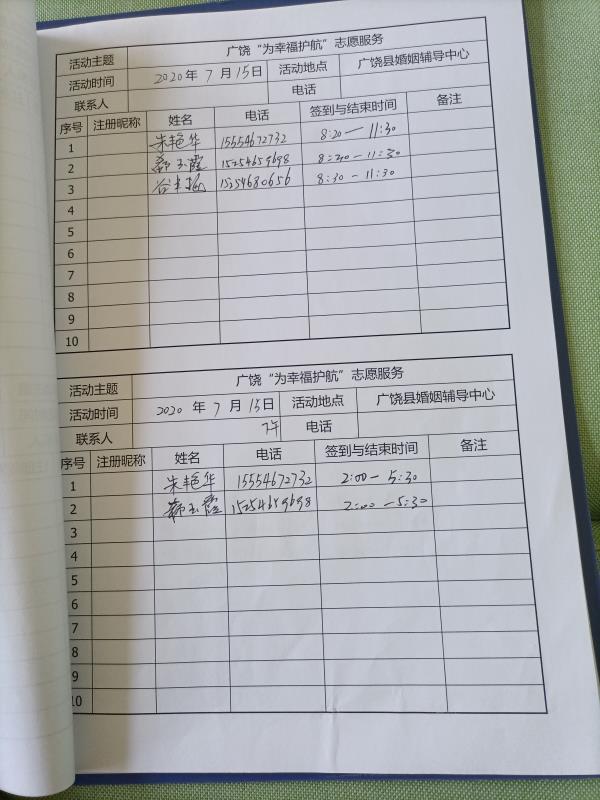 活动主题 广饶“为幸福护航”志愿服务
活动时间 2020年 7 月 15日 活动地点 广饶县婚姻辅导中心
联系人 电话
序号 注册昵称 姓名 电话 签到与结束时间 备注
1 朱艳华 15554672732 8:20—11:30
2 玉霞 15254659698 8:20—11:30
3 谷 15254680656 8:30-11:30
4
5
6
7
8
9
10
活动主题 广饶“为幸福护航”志愿服务
活动时间 2020 年 7 月 15日 活动地点 广饶县婚姻辅导中心
联系人 下午 电话
序号 注册昵称 姓名 电话 签到与结束时间 备注
1 朱艳华 15554672732 2:00-5:30
2 玉霞 15254659698 2:00-5:30
3
4
5
6
7
8
9
10